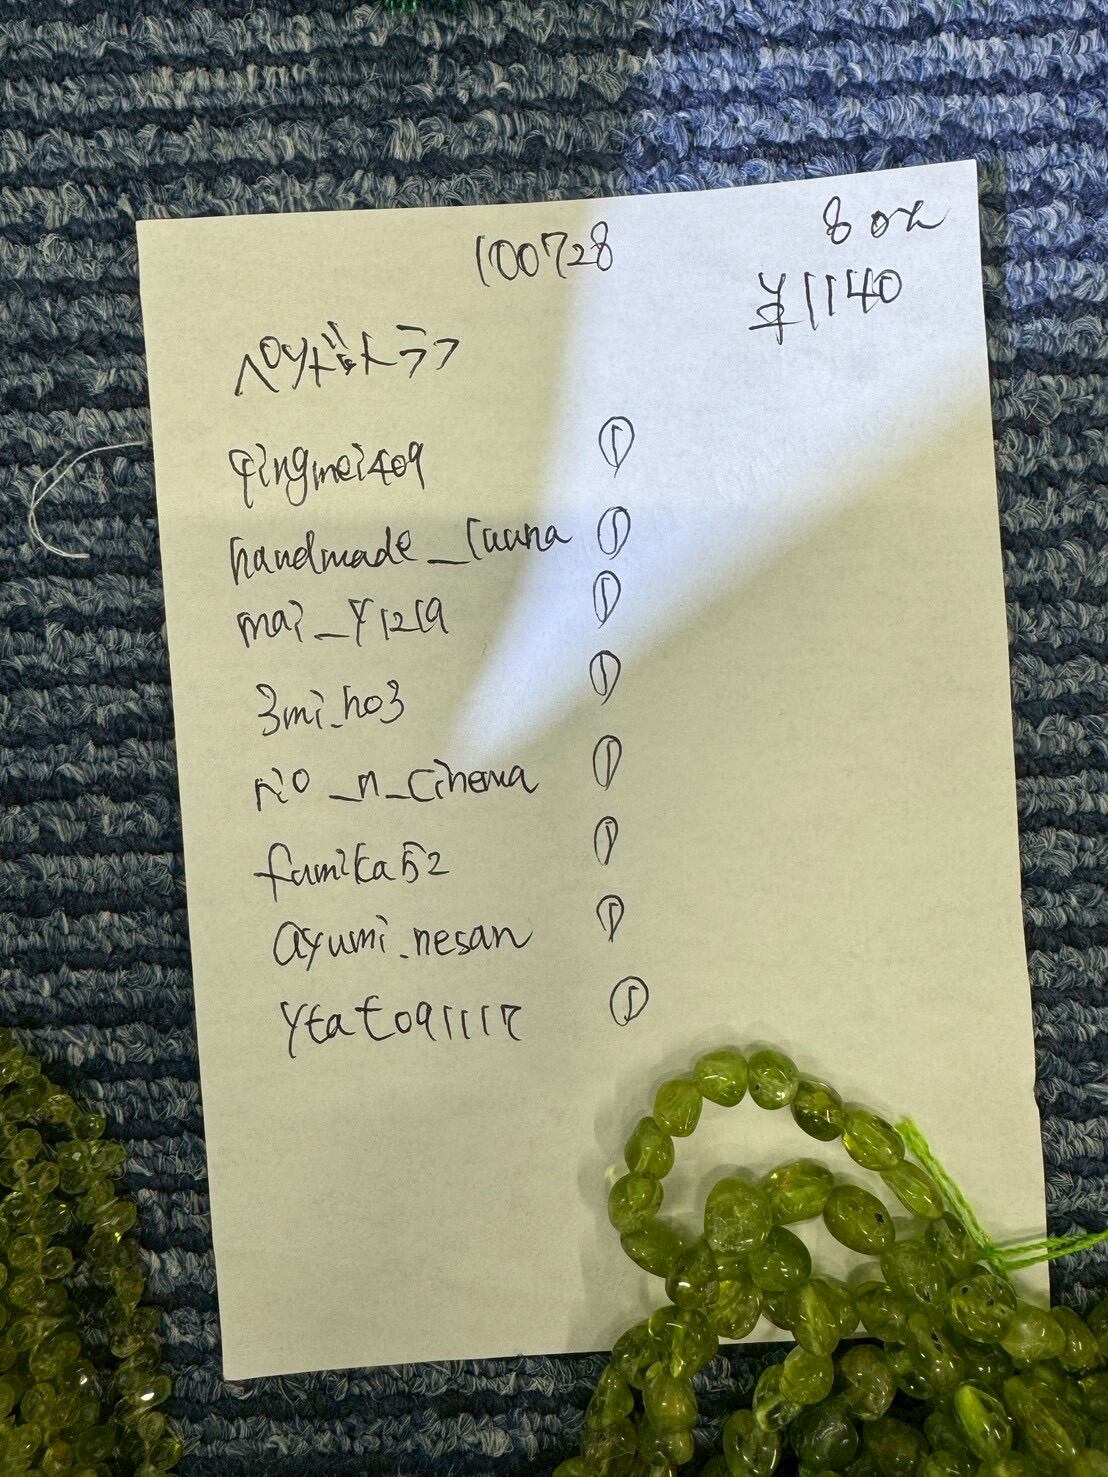 100728
¥1140
ペリドットラフ
qingmei409
handmade_luuna
mai_y1219
3mi_ho3
rio_n_cinema
fumika52
ayumi.nesan
ytato91117
①
①
①
①
①
①
①
①